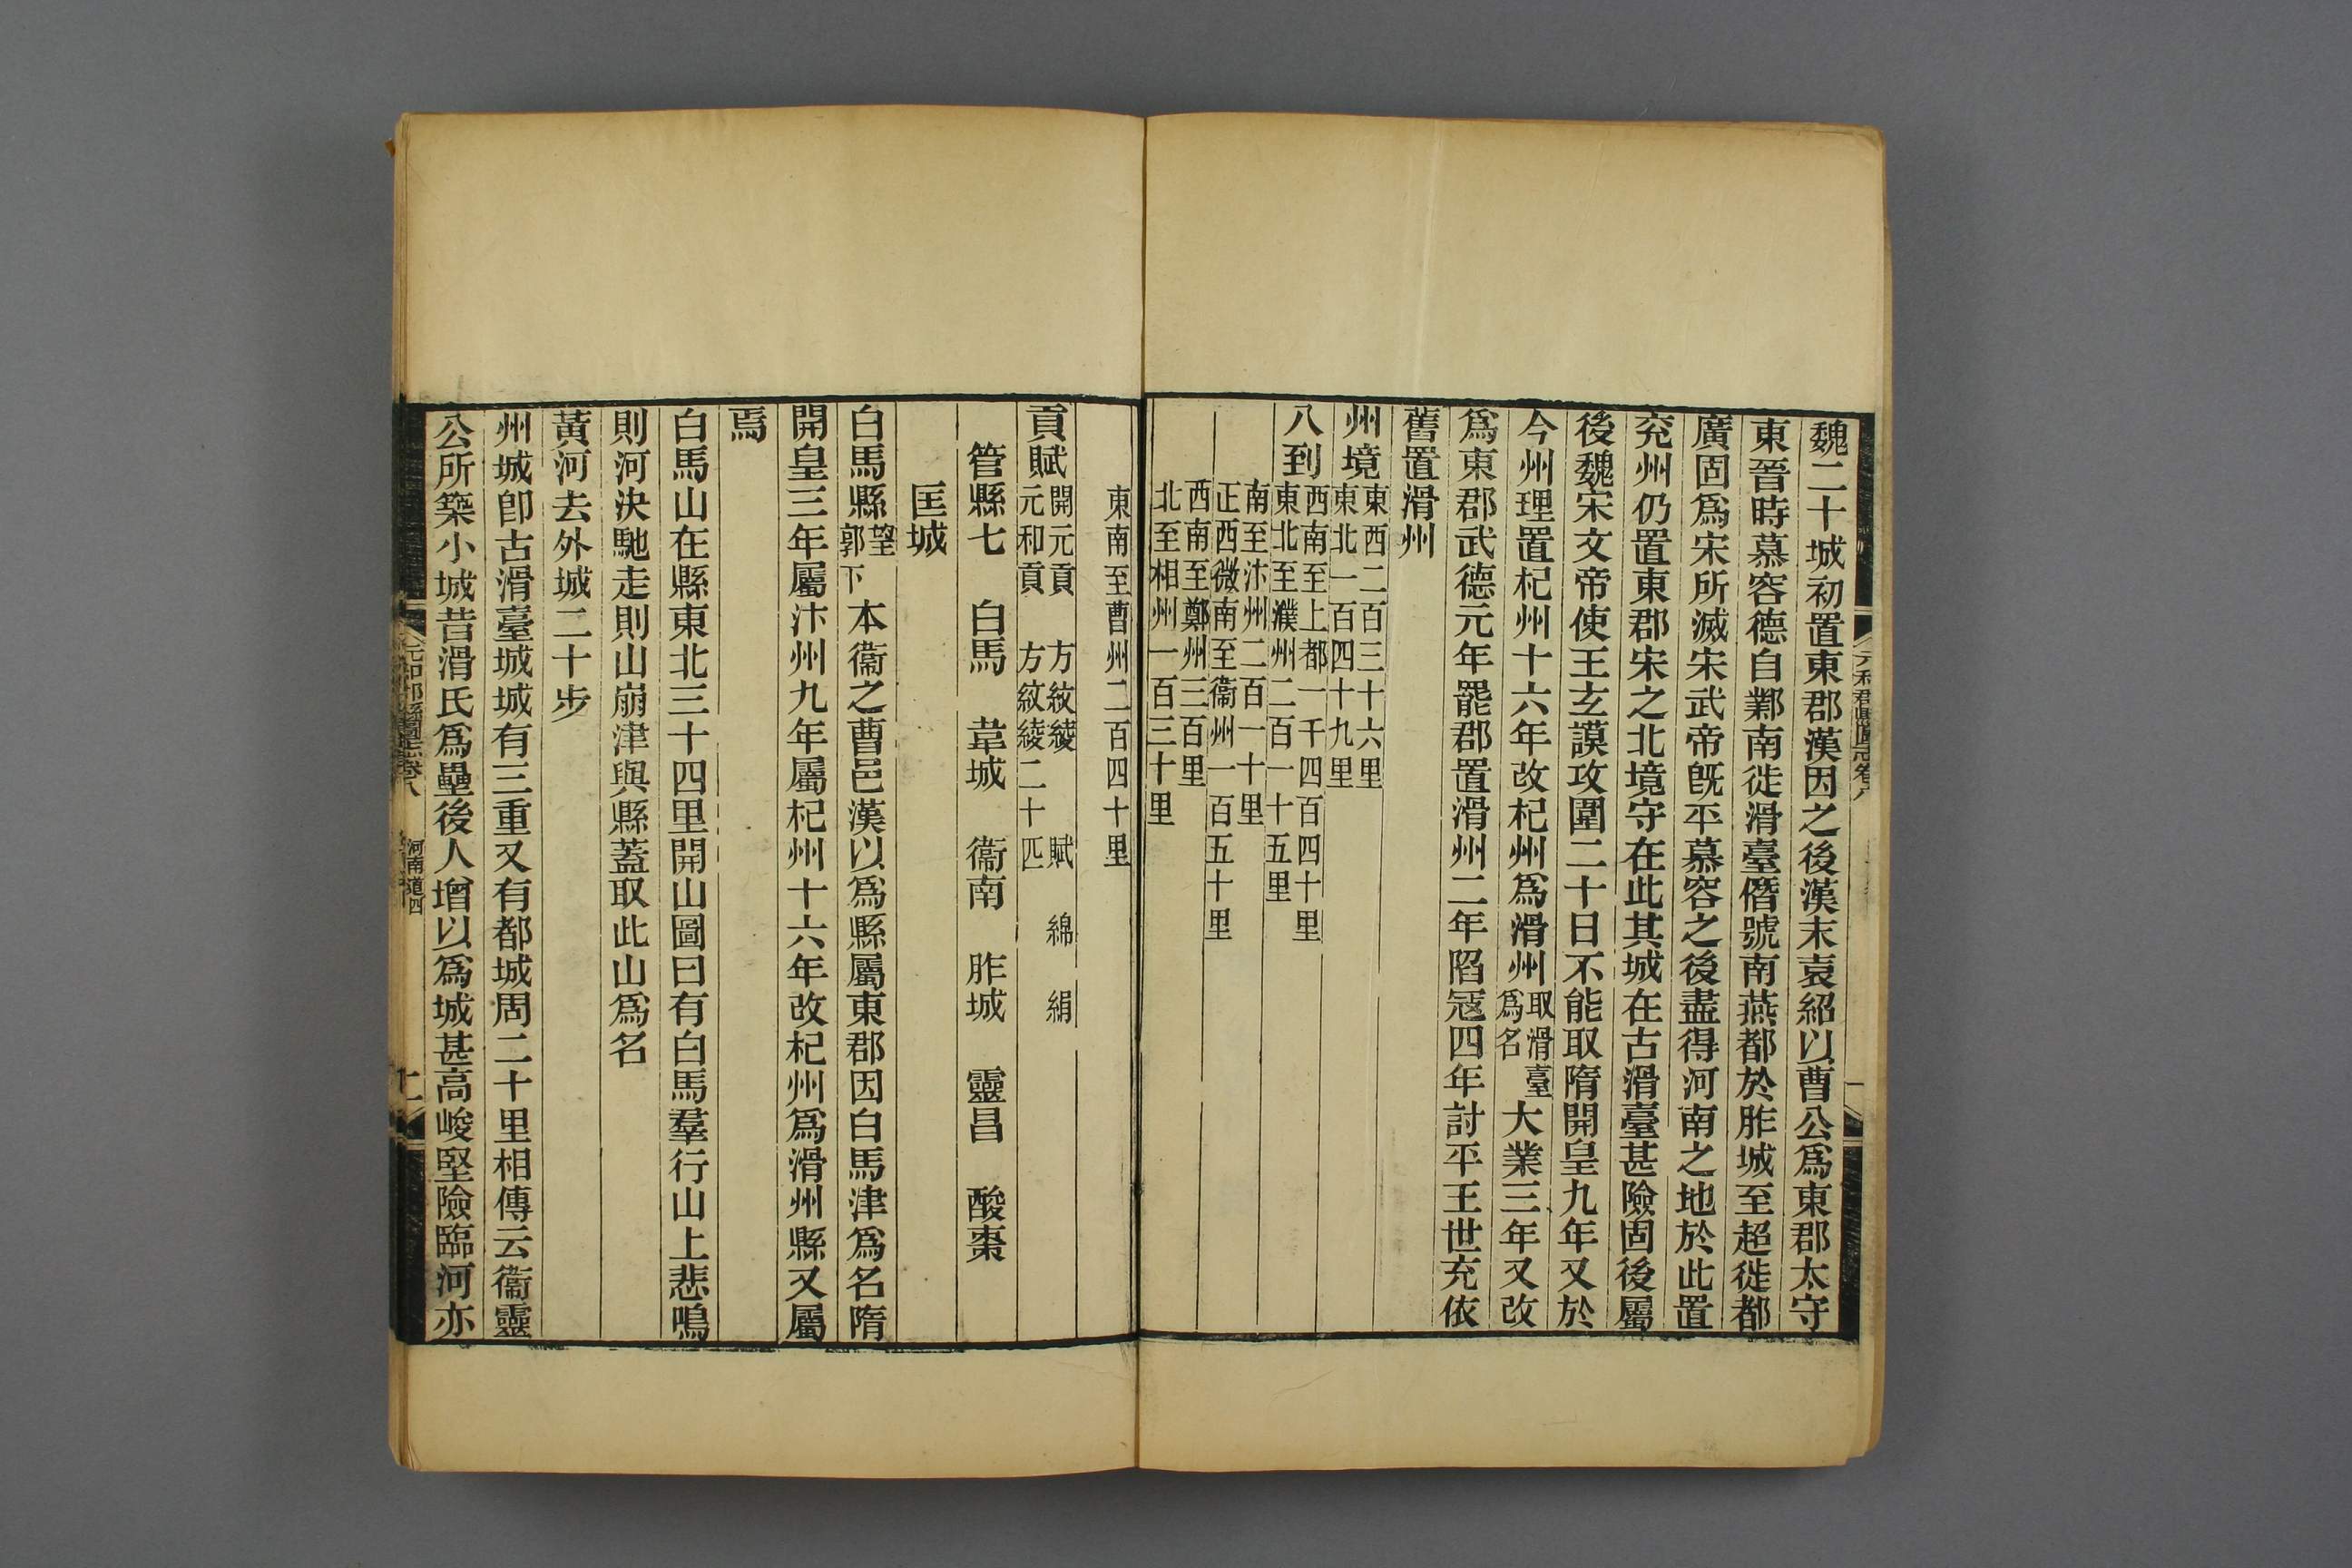 魏二十城初置東郡漢因之後漢末袁紹以曹公爲東郡太守
東晉時慕容德自鄴南徙滑臺僭號南燕都於胙城至超徙都
廣固爲宋所滅宋武帝旣平慕容之後盡得河南之地於此置
兖州仍置東郡宋之北境守在此其城在古滑臺甚險固後屬
後魏宋文帝使王玄謨攻圍二十日不能取隋開皇九年又於
今州理置杞州十六年改杞州爲滑州取滑臺爲名大業三年又改
爲東郡武德元年罷郡置滑州二年陷寇四年討平王世充依
舊置滑州
州境東西二百三十六里東北一百四十九里
八到西南至上都一千四百四十里東北至濮州二百一十五里
南至汴州二百一十里正西微南至衞州一百五十里
西南至鄭州三百里北至相州一百三十里
東南至曹州二百四十里
貢賦開元貢 方紋綾 賦 綿 絹元和貢 方紋綾二十匹
管縣七 白馬 韋城 衞南 胙城 靈昌 酸棗
匡城
白馬縣望郭下本衞之曹邑漢以爲縣屬東郡因白馬津爲名隋
開皇三年屬汴州九年屬杞州十六年改杞州爲滑州縣又屬
焉
白馬山在縣東北三十四里開山圖曰有白馬羣行山上悲鳴
則河決馳走則山崩津與縣蓋取此山爲名
黃河去外城二十步
州城卽古滑臺城城有三重又有都城周二十里相傳云衞靈
公所築小城昔滑氏爲壘後人增以爲城甚高峻堅險臨河亦
元和郡縣圖志卷八 河南道四